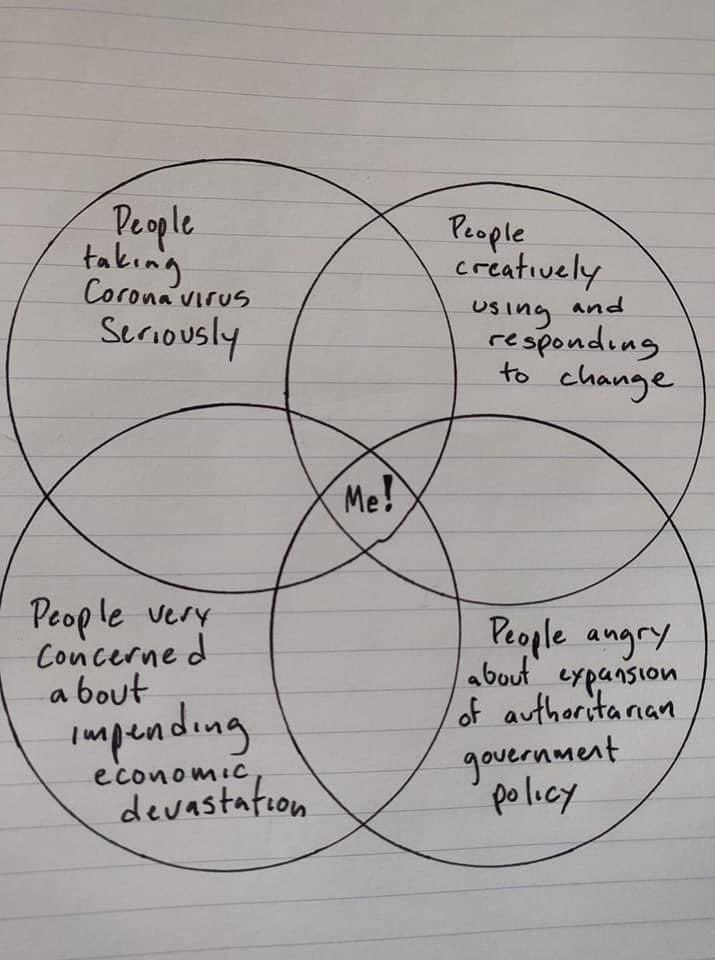 People
taking
Coronavirus
Seriously
People
creatively
using and
responding
to change
Me!
People very
concerned
about
impending
economic
devastation
People angry
about expansion
of authoritarian
government
policy